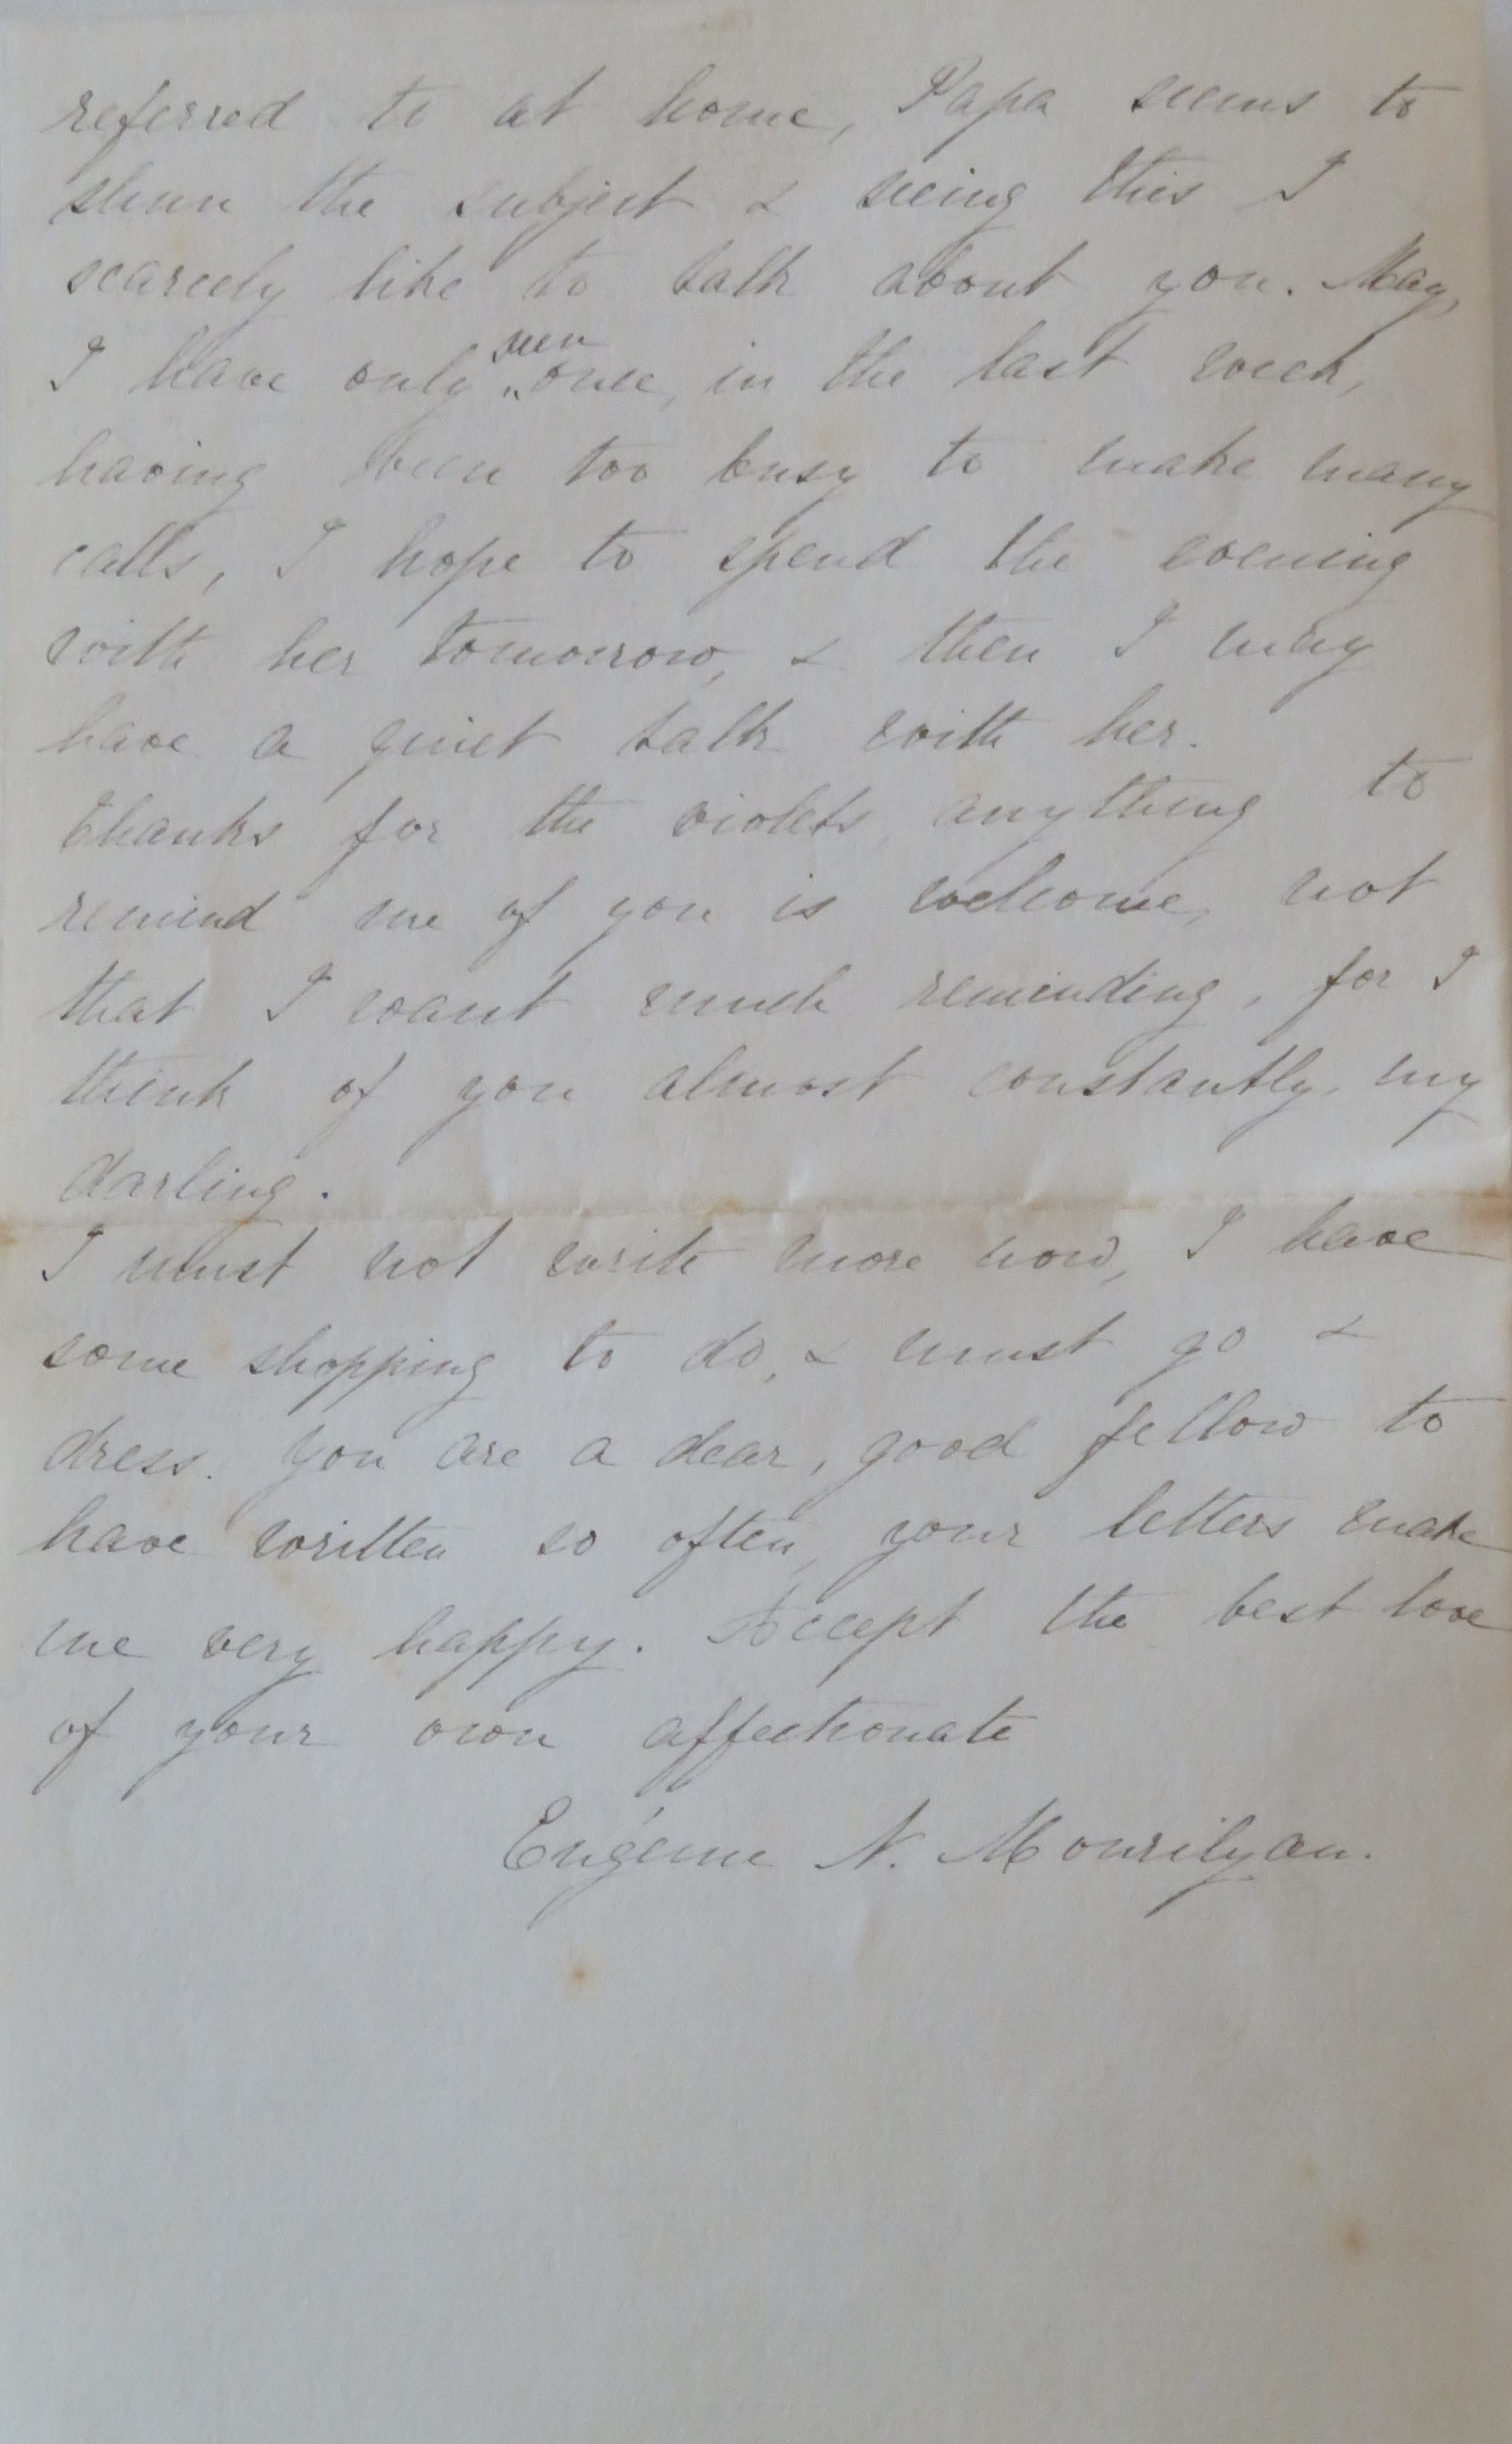 referred to at home, Papa seems to
shun the subject & seeing this I
scarcely like to talk about you. May,
seen
I have only once, in the last week,
having been too busy to make many
calls, I hope to spend the evening
with her tomorrow, & then I may
have a quiet talk with her.
thanks for the violets, anything to
remind me of you is welcome, not
that I want much reminding, for I
think of you almost constantly, my
darling.
I must not write more now, I have
some shopping to do, & must go &
dress. you are a dear, good fellow to
have written so often, your letters make
me very happy. Accept the best love
of your own affectionate
Eugénie N. Mourilyan.